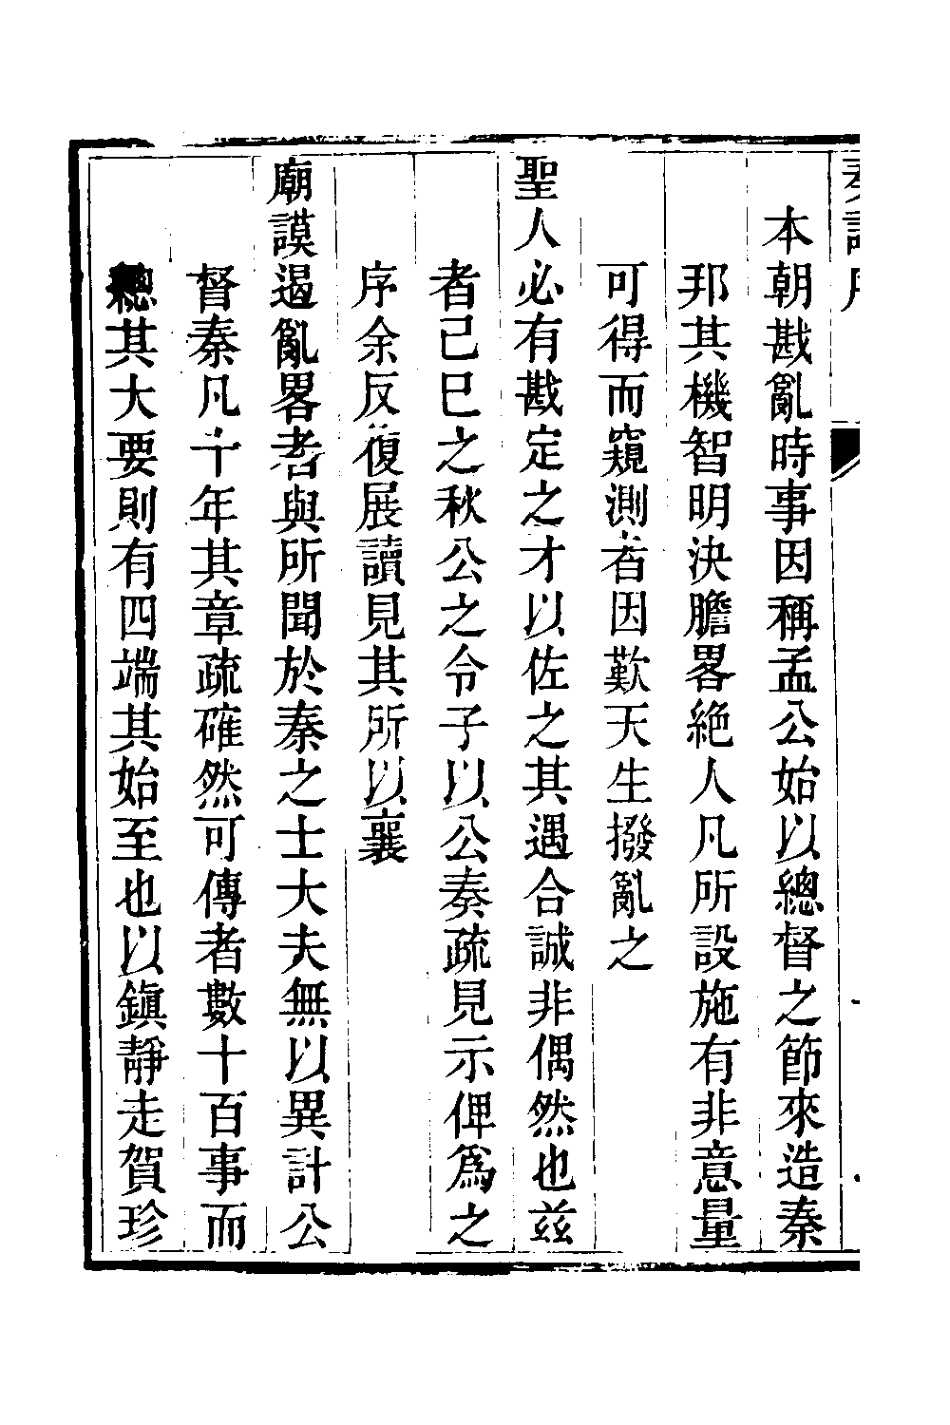 本朝戡亂時事因稱孟公始以總督之節來造秦
邦其機智明決膽畧絶人凡所設施有非意量
可得而窺測者因歎天生撥亂之
聖人必有戡定之才以佐之其遇合誠非偶然也兹
者己巳之秋公之令子以公奏疏見示俾爲之
序余反復展讀見其所以襄
廟謨遏亂畧者與所聞於秦之士大夫無以異計公
督秦凡十年其章疏確然可傳者數十百事而
總其大要則有四端其始至也以鎭靜走賀珍